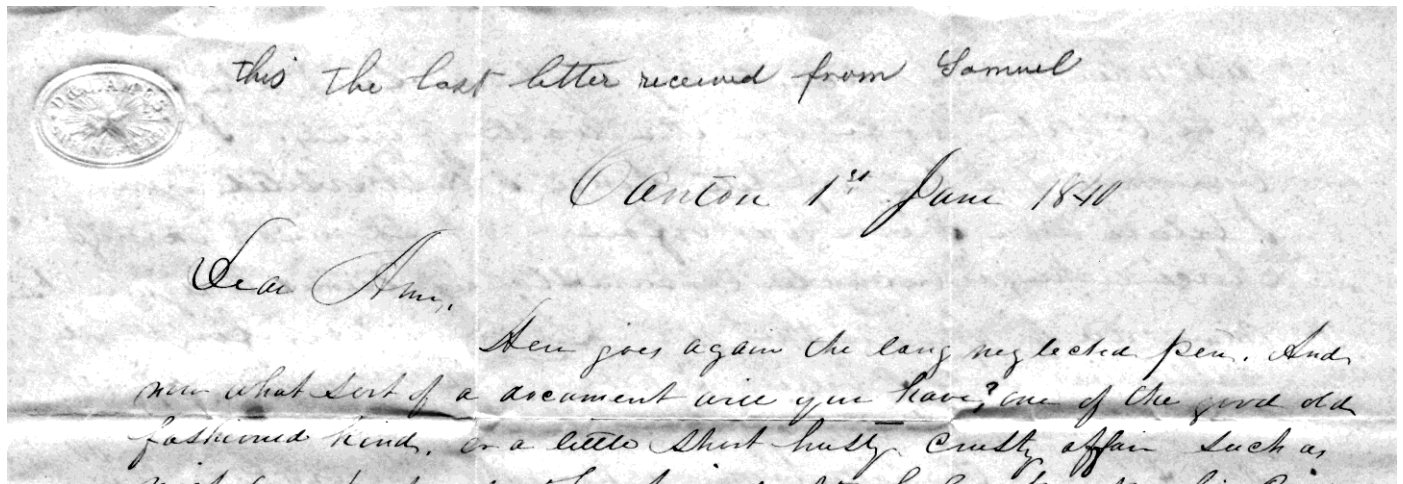 this the last letter received from Samuel
Canton 1st June 1840
Dear Ann,
Here goes again the long neglected pen. And
now what sort of a document will you have? one of the good old
fashioned kind. or a little short husty crusty affair such as